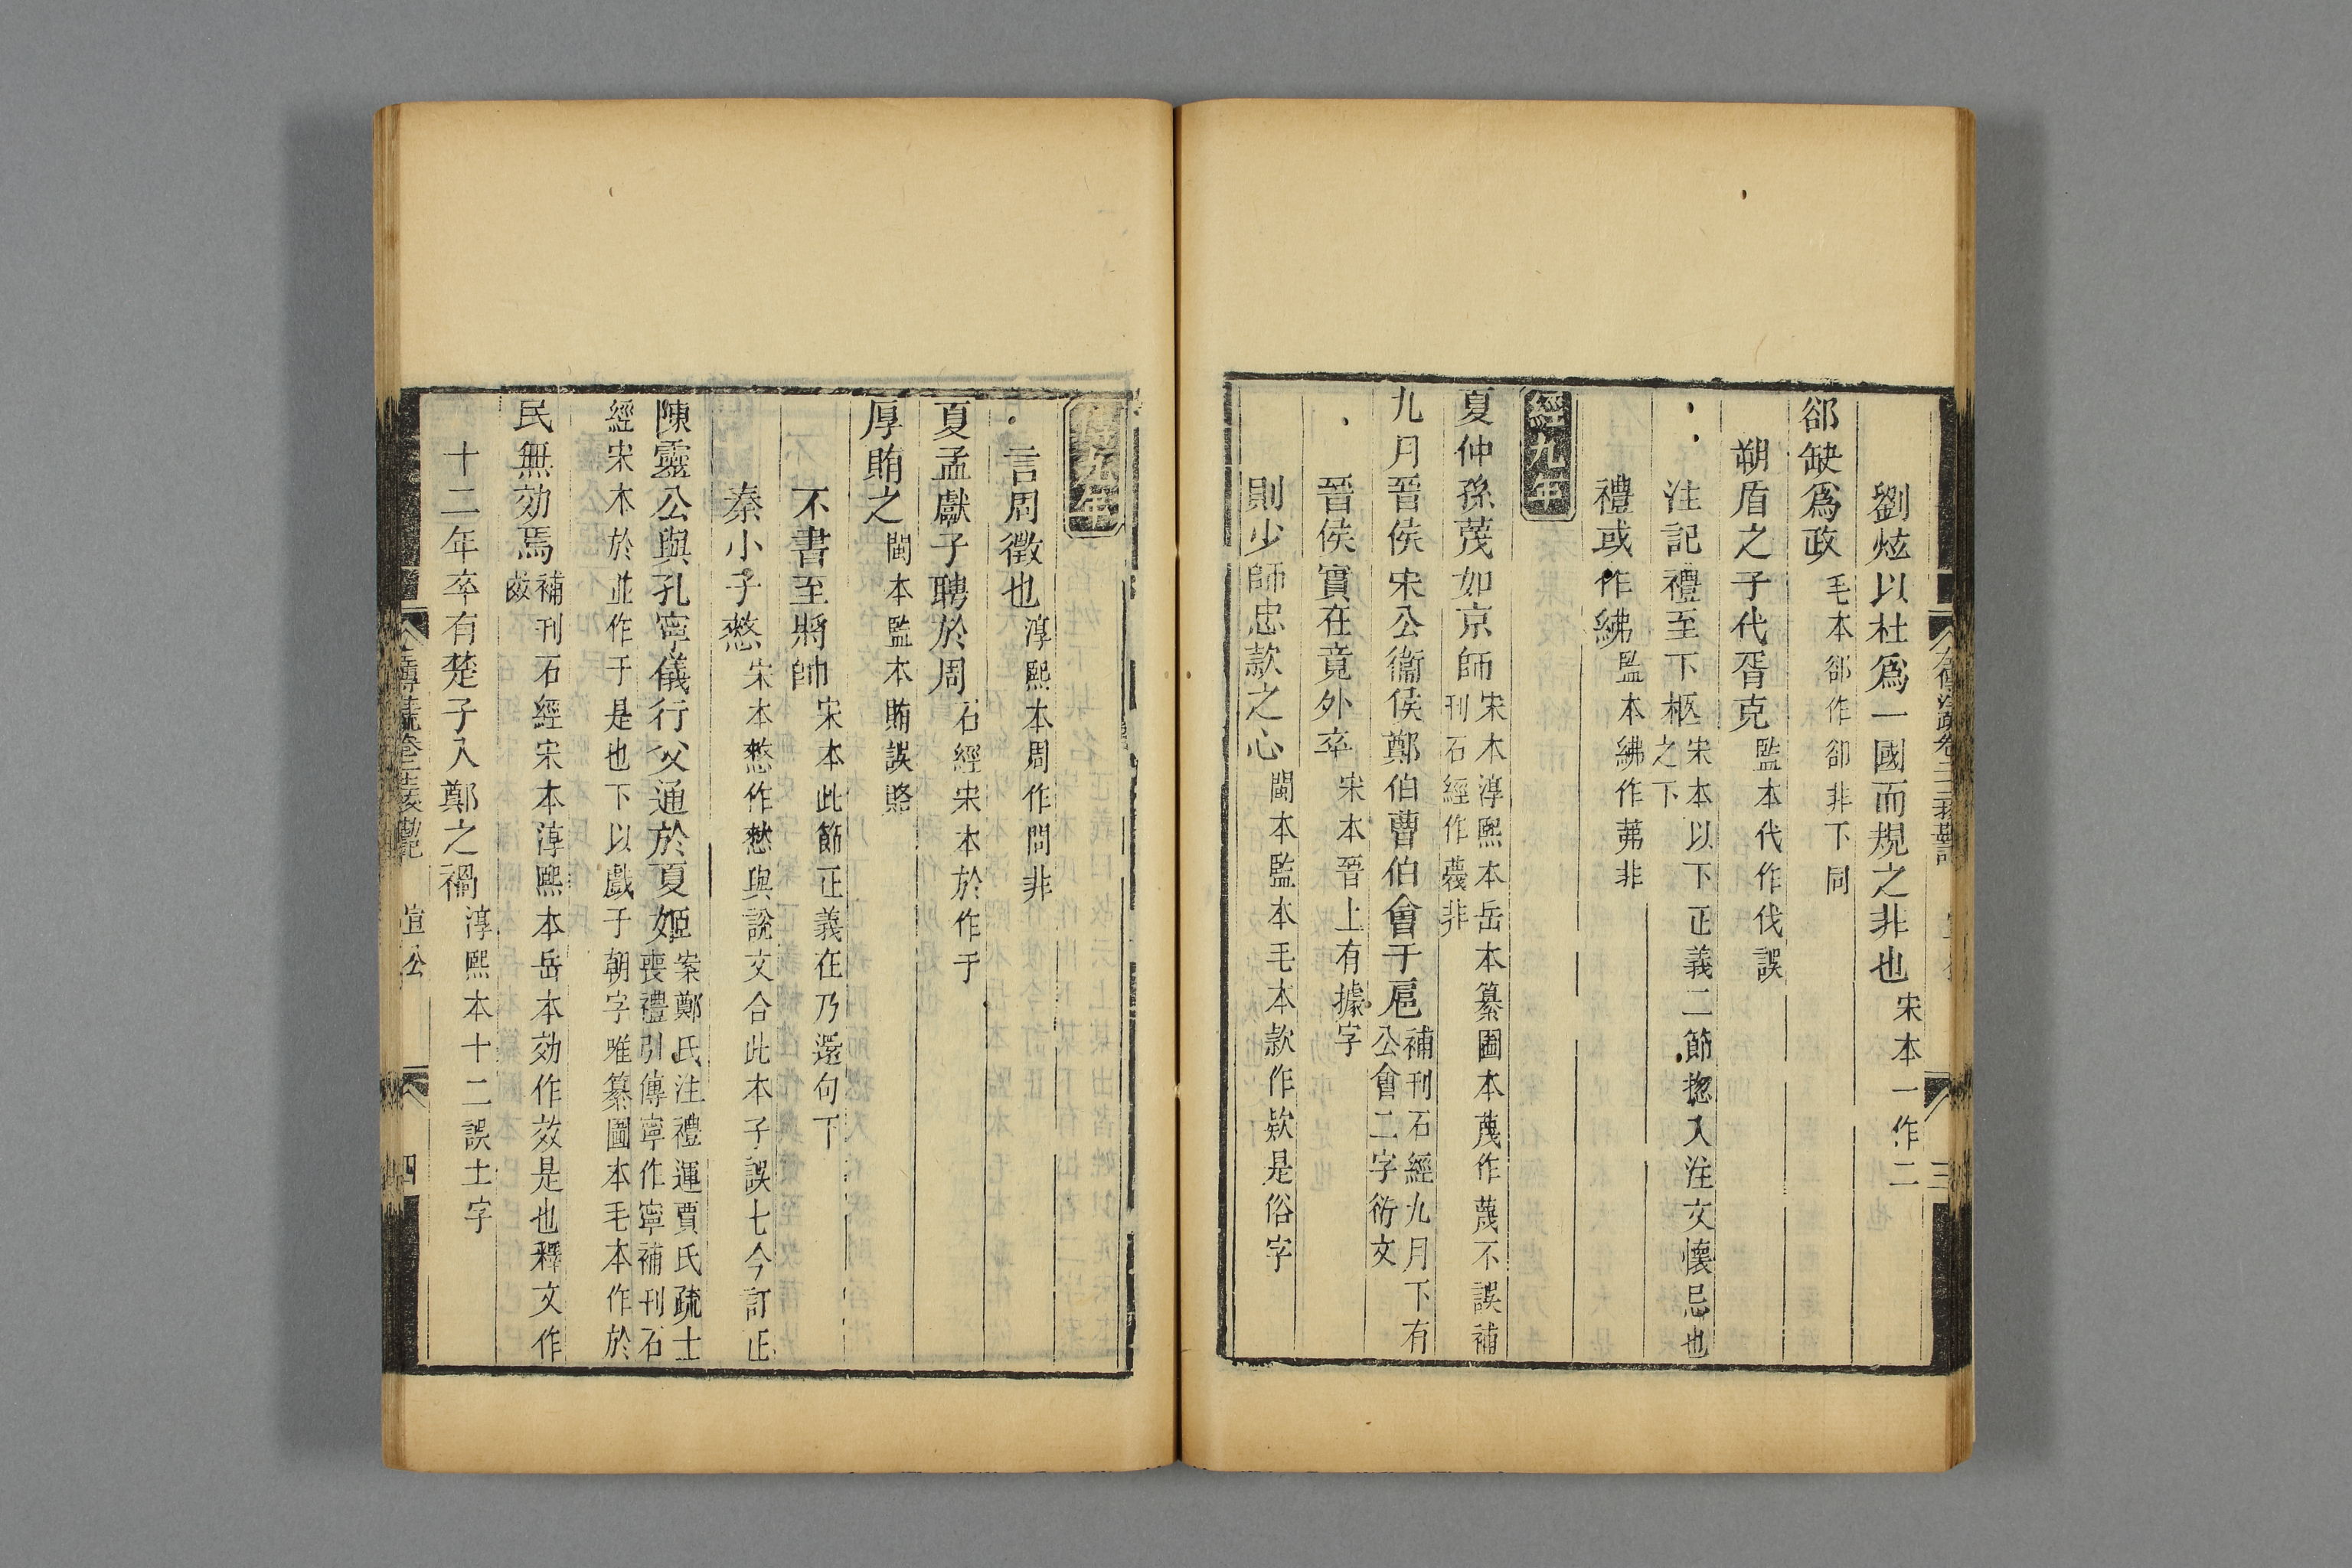 劉炫以杜爲一國而規之非也宋本一作二
郤缺爲政毛本郤作卻非下同
朔盾之子代胥克監本代作伐誤
注記禮至下柩宋本以下正義二節揔入注文懷忌也之下
禮或作紼監本紼作茀非
經九年
夏仲孫蔑如京師宋本淳熙本岳本纂圖本蔑作蔑不誤補刊石經作蔑非
九月晉侯宋公衞侯鄭伯曹伯會于扈補刊石經九月下有公會二字衍文
晉侯實在竟外卒宋本晉上有據字
則少師忠款之心閩本監本毛本款作欵是俗字
傳九年
言周徵也淳熙本周作問非
夏孟獻子聘於周石經宋本於作于
厚賄之閩本監本賄誤賂
不書至將帥宋本此節正義在乃還句下
秦小子憗宋本憗作憖與說文合此本子誤七今訂正
陳靈公與孔寧儀行父通於夏姬案鄭氏注禮運賈氏疏士喪禮引傳寧作甯補刊石
經宋本於並作于是也下以戲于朝字唯纂圖本毛本作於
民無効焉補刊石經宋本淳熙本岳本効作效是也釋文作傚
十二年卒有楚子入鄭之禍淳熙本十二誤土字
宣公
四